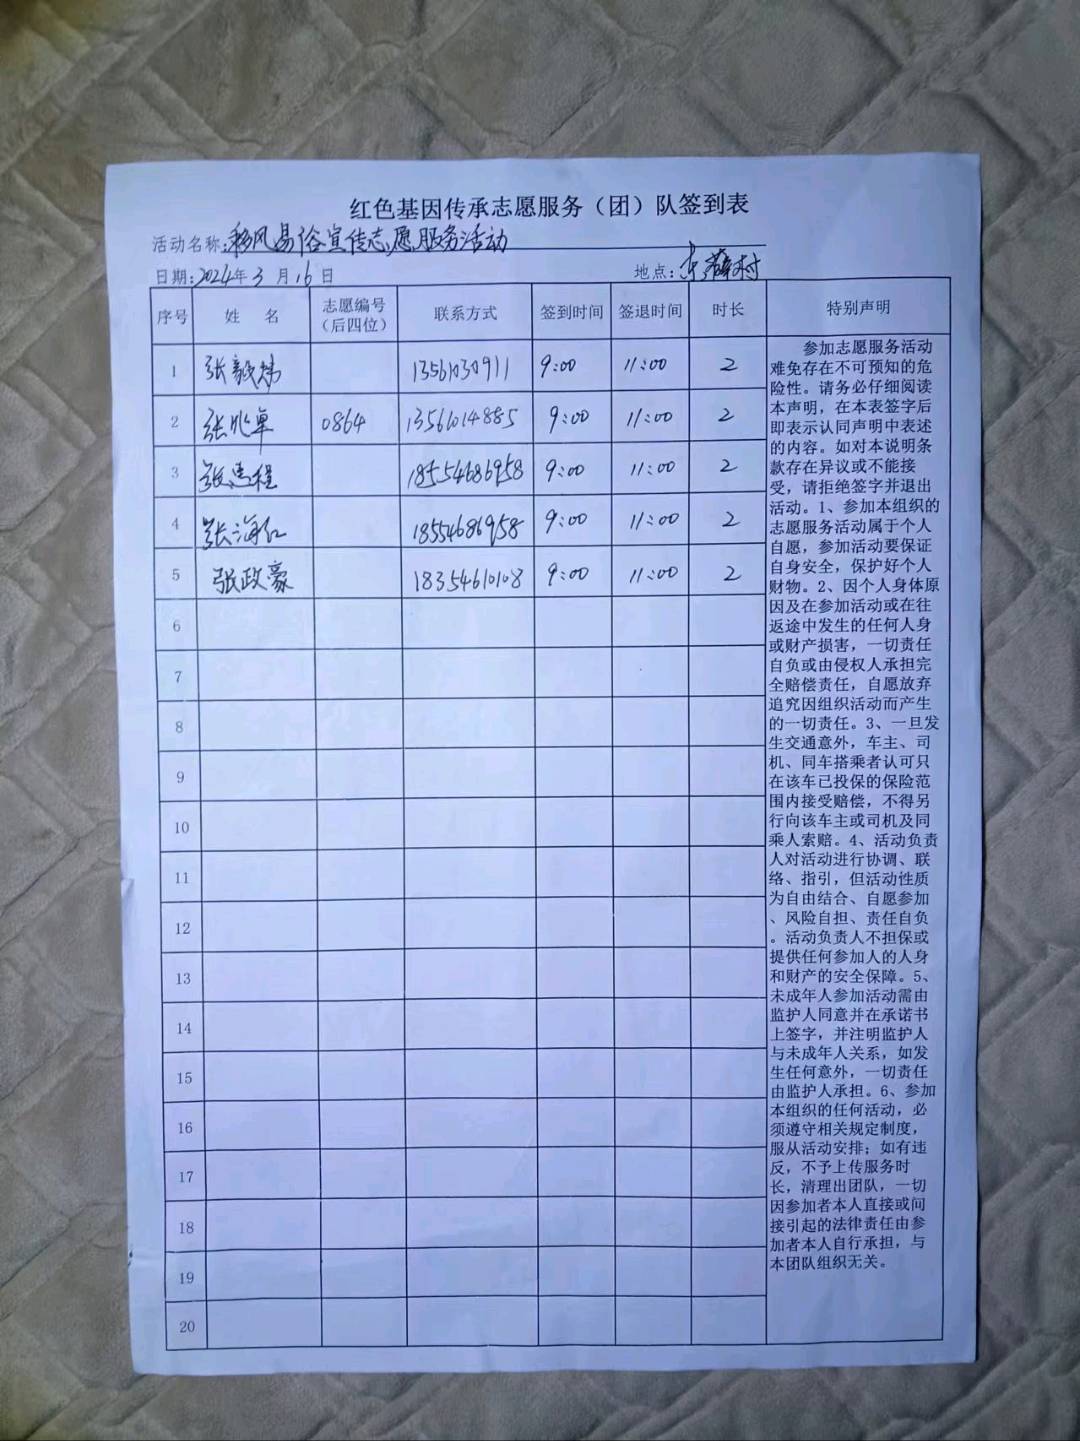 红色基因传承志愿服务（团）队签到表
活动名称:移风易俗宣传志愿服务活动
日期:2024年3月16日 地点:东薛村
序号 姓名 志愿编号（后四位） 联系方式 签到时间 签退时间 时长 特别声明
1 张毅炜 13561030911 9:00 11:00 2
2 张兆单 0864 13561014885 9:00 11:00 2
3 张思程 18554686958 9:00 11:00 2
4 张海红 18554686958 9:00 11:00 2
5 张政豪 18354610108 9:00 11:00 2
6
7
8
9
10
11
12
13
14
15
16
17
18
19
20
参加志愿服务活动
难免存在不可预知的危
险性。请务必仔细阅读
本声明，在本表签字后
即表示认同声明中表述
的内容。如对本说明条
款存在异议或不能接
受，请拒绝签字并退出
活动。1、参加本组织的
志愿服务活动属于个人
自愿，参加活动要保证
自身安全，保护好个人
财物。2、因个人身体原
因及在参加活动或在往
返途中发生的任何人身
或财产损害，一切责任
自负或由侵权人承担完
全赔偿责任，自愿放弃
追究因组织活动而产生
的一切责任。3、一旦发
生交通意外，车主、司
机、同车搭乘者认可只
在该车已投保的保险范
围内接受赔偿，不得另
行向该车主或司机及同
乘人索赔。4、活动负责
人对活动进行协调、联
络、指引，但活动性质
为自由结合、自愿参加
、风险自担、责任自负
。活动负责人不担保或
提供任何参加人的人身
和财产的安全保障。5、
未成年人参加活动需由
监护人同意并在承诺书
上签字，并注明监护人
与未成年人关系，如发
生任何意外，一切责任
由监护人承担。6、参加
本组织的任何活动，必
须遵守相关规定制度，
服从活动安排；如有违
反，不予上传服务时
长，清理出团队，一切
因参加者本人直接或间
接引起的法律责任由参
加者本人自行承担，与
本团队组织无关。